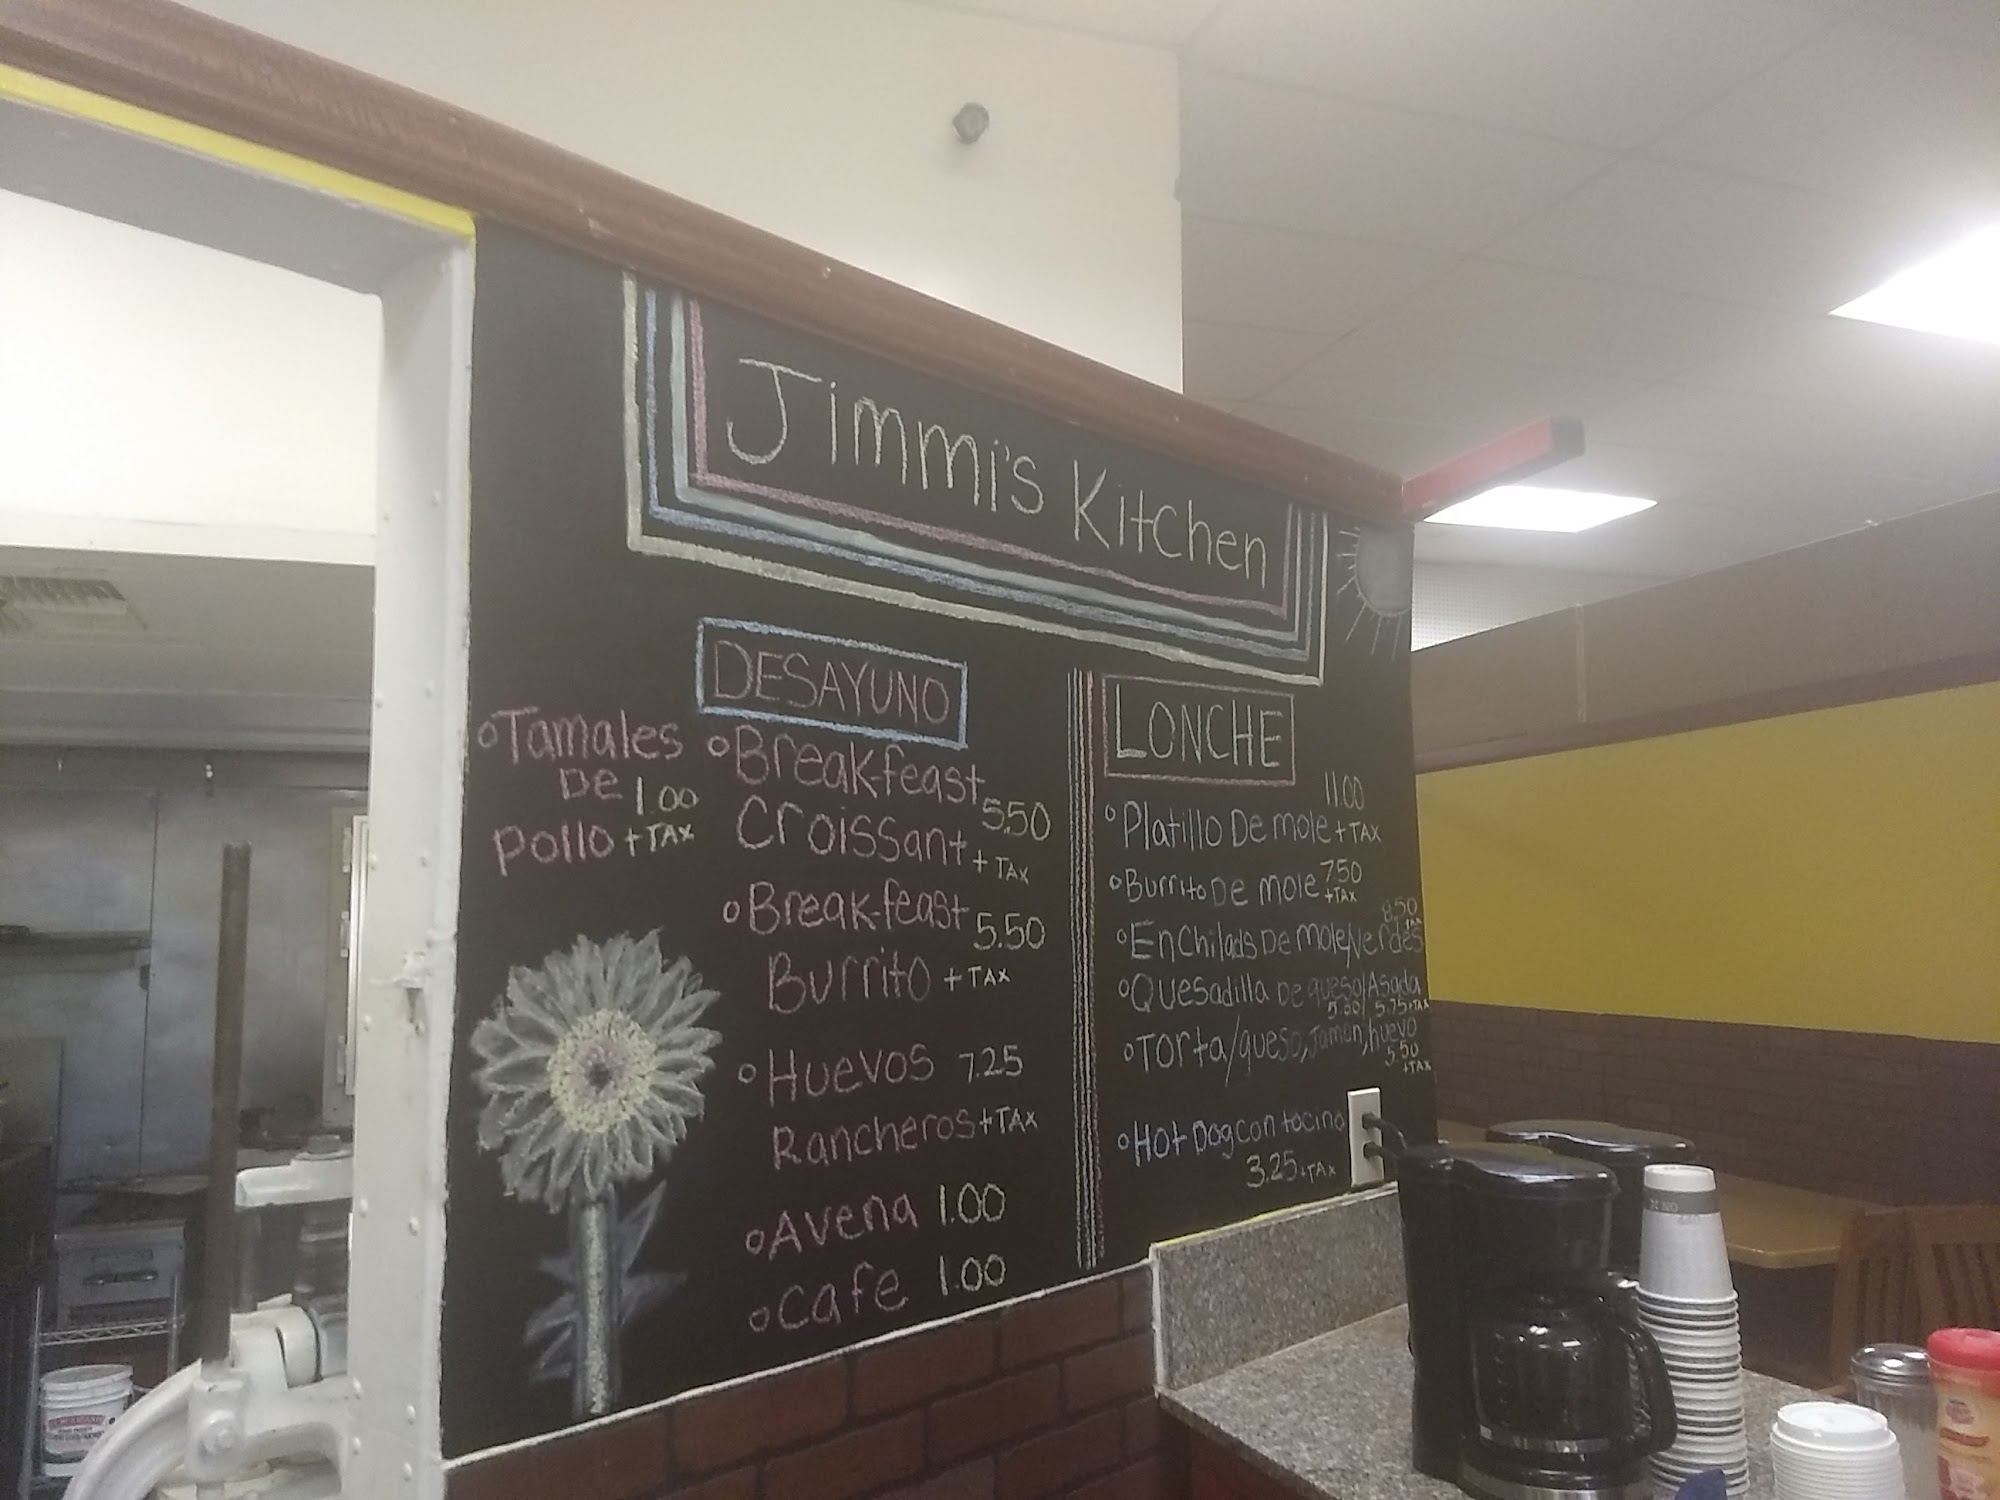 Jimmi's Kitchen
DESAYUNO
°Tamales
De 1.00
pollo +TAX
°Break-feast
Croissant 5.50
+TAX
°Break-feast 5.50
Burrito +TAX
°Huevos 7.25
Rancheros +TAX
°Avena 1.00
°Cafe 1.00
LONCHE
11.00
°Platillo De mole +TAX
°Burrito De mole 7.50
+TAX
8.50
°Enchilads De mole/verdes
°Quesadilla De queso/Asada
5.75+TAX
°Torta/queso, Jamon, huevo
5.50
+TAX
°Hot Dog con tocino
3.25+TAX